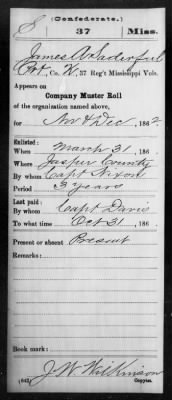 (Confederate.)
S 37 Miss.
James A Saderfield
Pvt, Co. K, 37 Reg't Mississippi Vols.
Appears on
Company Muster Roll
of the organization named above,
for Nov & Dec, 1862.
Enlisted:
When March 31, 186 .
Where Jasper County
By whom Capt Nixon
Period 3 years
Last paid:
By whom Capt Davis
To what time Oct 31, 186 .
Present or absent Present
Remarks:
Book mark:
J. W. Wilkinson
(642) Copyist.